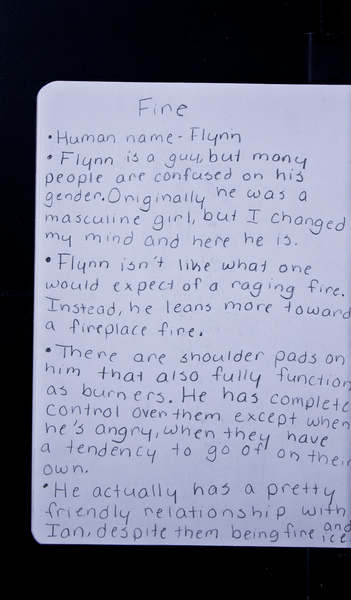 Fine
• Human name - Flynn
• Flynn is a guy, but many
people are confused on his
gender. Originally he was a
masculine girl, but I changed
my mind and here he is.
• Flynn isn't like what one
would expect of a raging fire.
Instead, he leans more toward
a fireplace fire.
• There are shoulder pads on
him that also fully function
as burners. He has complete
control over them except when
he's angry, when they have
a tendency to go off on their
own.
• He actually has a pretty
friendly relationship with
Ian, despite them being fire and
ice